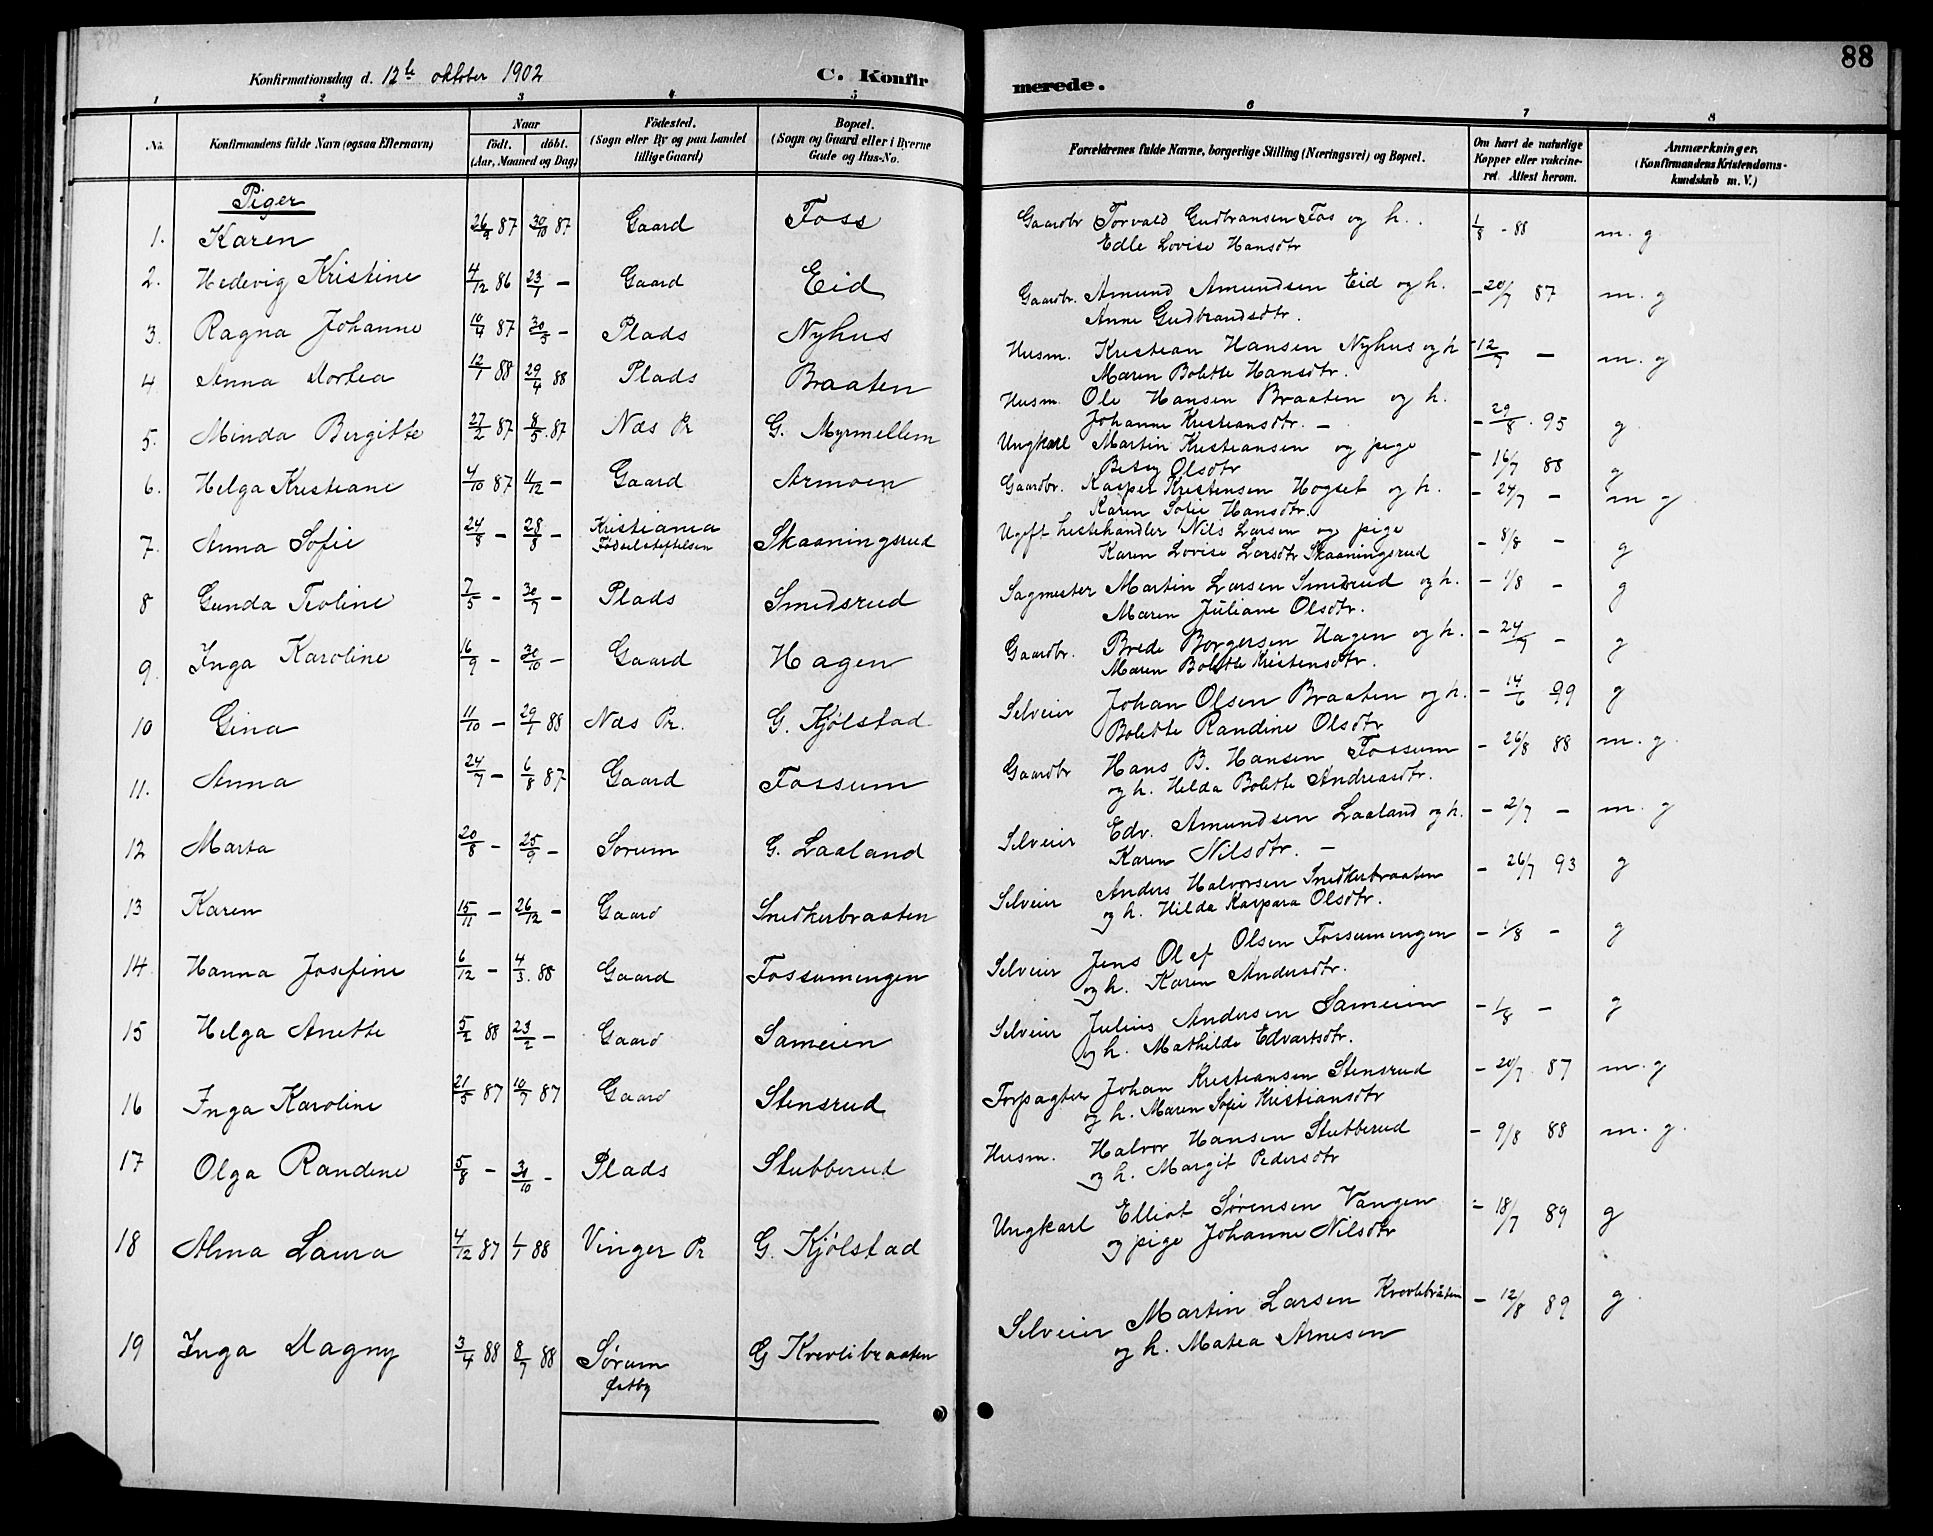 88
Konfirmationsdag d. 12te oktober 1902 C. Konfirmerede.
1 2 3 4 5 6 7 8
No. Konfirmandens fulde Navn (ogsaa Efternavn) Naar født. døbt. (Aar, Maaned og Dag) Fødested. (Sogn eller By og paa Landet tillige Gaard) Bopæl. (Sogn og Gaard eller i Byerne Gade og Hus-No. Forældrenes fulde Navne, borgerlige Stilling (Næringsvei) og Bopæl. Om havt de naturlige Kopper eller vaksineret. Attest herom. Anmærkninger. (Konfirmandens Kristendomskundskab m. V.)
Piger
1. Karen 26/9 87 30/10 87 Gaard Foss Gaardbr Torvald Gudbransen Fos og h. 1/8 - 88 m. g
Edle Lovise Hansdtr
2. Hedevig Kristine 4/12 86 23/1 - Gaard Eid Gaardbr. Amund Amundsen Eid og h. - 20/7 87 m. g
Anne Gudbrandsdtr.
3. Ragna Johanne 10/4 87 30/5 - Plads Nyhus Husm. Kristian Hansen Nyhus og h - 12/7 - m. g
Maren Bolette Hansdtr.
4. Anna Dortea 12/1 88 29/4 88 Plads Braaten Husm. Ole Hansen Braaten og h. - 29/8 . 95 g
Johanne Kristiansdtr. -
5. Minda Bergitte 27/2 87 8/5 . 87 Næs Pr G. Myrmellem Ungkarl Martin Kristiansen og pige - 16/7 88 g
Betsy Olsdtr
6. Helga Kristiane 4/10 87 11/12 - Gaard Armoen Gaardbr. Kasper Kristensen Hogset og h. - 24/7 - m g
Karen Sofie Hansdtr.
7. Anna Sofie 24/8 - 28/8 - Kristiania Fødselstiftelsen Skaaningsrud Ugift hestehandler Nils Larsen og pige - 8/8 - g
Karen Lovise Larsdtr Skaaningsrud
8 Gunda Teoline 7/5 - 30/7 - Plads Smedsrud Sagmester Martin Larsen Smedsrud og h. - 1/8 - g
Maren Juliane Olsdtr.
9. Inga Karoline 16/9 - 30/10 - Gaard Hagen Gaardbr. Brede Borgersen Hagen og h. - 24/7 - g
Maren Bolette Kristensdtr.
10 Gina 11/10 - 29/1 88 Næs Pr. G. Kjølstad Selveier Johan Olsen Braaten og h. - 14/6 99 g
Bolette Randine Olsdtr
11. Anna 24/7 - 6/8 87 Gaard Fossum Gaardbr Hans B. Hansen Fossum - 26/8 88 m. g.
og h. Helda Bolette Andreasdtr.
12 Marta 20/8 - 25/9 - Sørum G. Laaland Selveier Edv. Amundsen Laaland og h. - 2/7 - m. g
Karen Nilsdtr. -
13 Karen 15/11 - 26/12 - Gaard Snedkerbraaten Selveier Anders Halvorsen Snedkerbraaten - 26/7 93 g
og h. Hilda Kaspara Olsdtr.
14. Hanna Josefine 6/12 - 4/3. 88 Gaard Fossumengen Selveier Jens Olaf Olsen Fossumengen - 1/8 - g
og h. Karen Andersdtr.
15 Helga Anette 5/2 88 23/2 - Gaard Sameien Selveier Julius Andersen Sameien - 1/8 - g
og h. Mathilde Edvartsdtr.
16 Inga Karoline 21/5 87 10/7 87 Gaard Stensrud Forpagter Johan Kristiansen Stensrud - 20/7. 87 m. g
og h. Maren Sofie Kristiansdtr
17 Olga Randine 5/8 - 30/10 - Plads Stubberud Husm. Halvor Hansen Stubberud - 9/8 88 m. g.
og h. Margit Pedersdtr
18 Alma Laura 4/12 87 1/1 88 Vinger Pr G. Kjølstad Ungkarl Elliot Sørensen Vangen - 18/7 89 g
og pige Johanne Nilsdtr
19 Inga Magny 3/4 88 8/7 88 Sørum Østby G Kvevlibraaten Selveier Martin Larsen Kvevlebråten - 12/8 89 g.
og h. Matea Arnesen